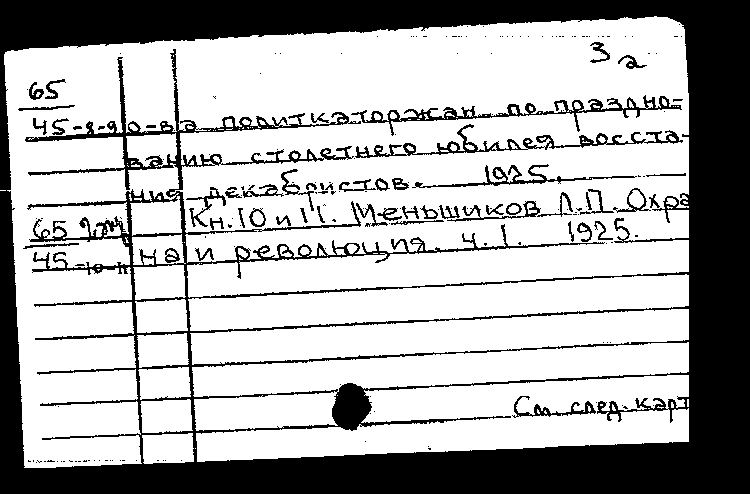 3а
65
45-8-9 о-ва политкаторжан по праздно-
ванию столетнего юбилея восста-
ния декабристов. 1925.
65 Кн. 10 и 11. Меньшиков Л.П. Охра
45-10-11 на и революция. ч. I. 1925.
См. след. карт